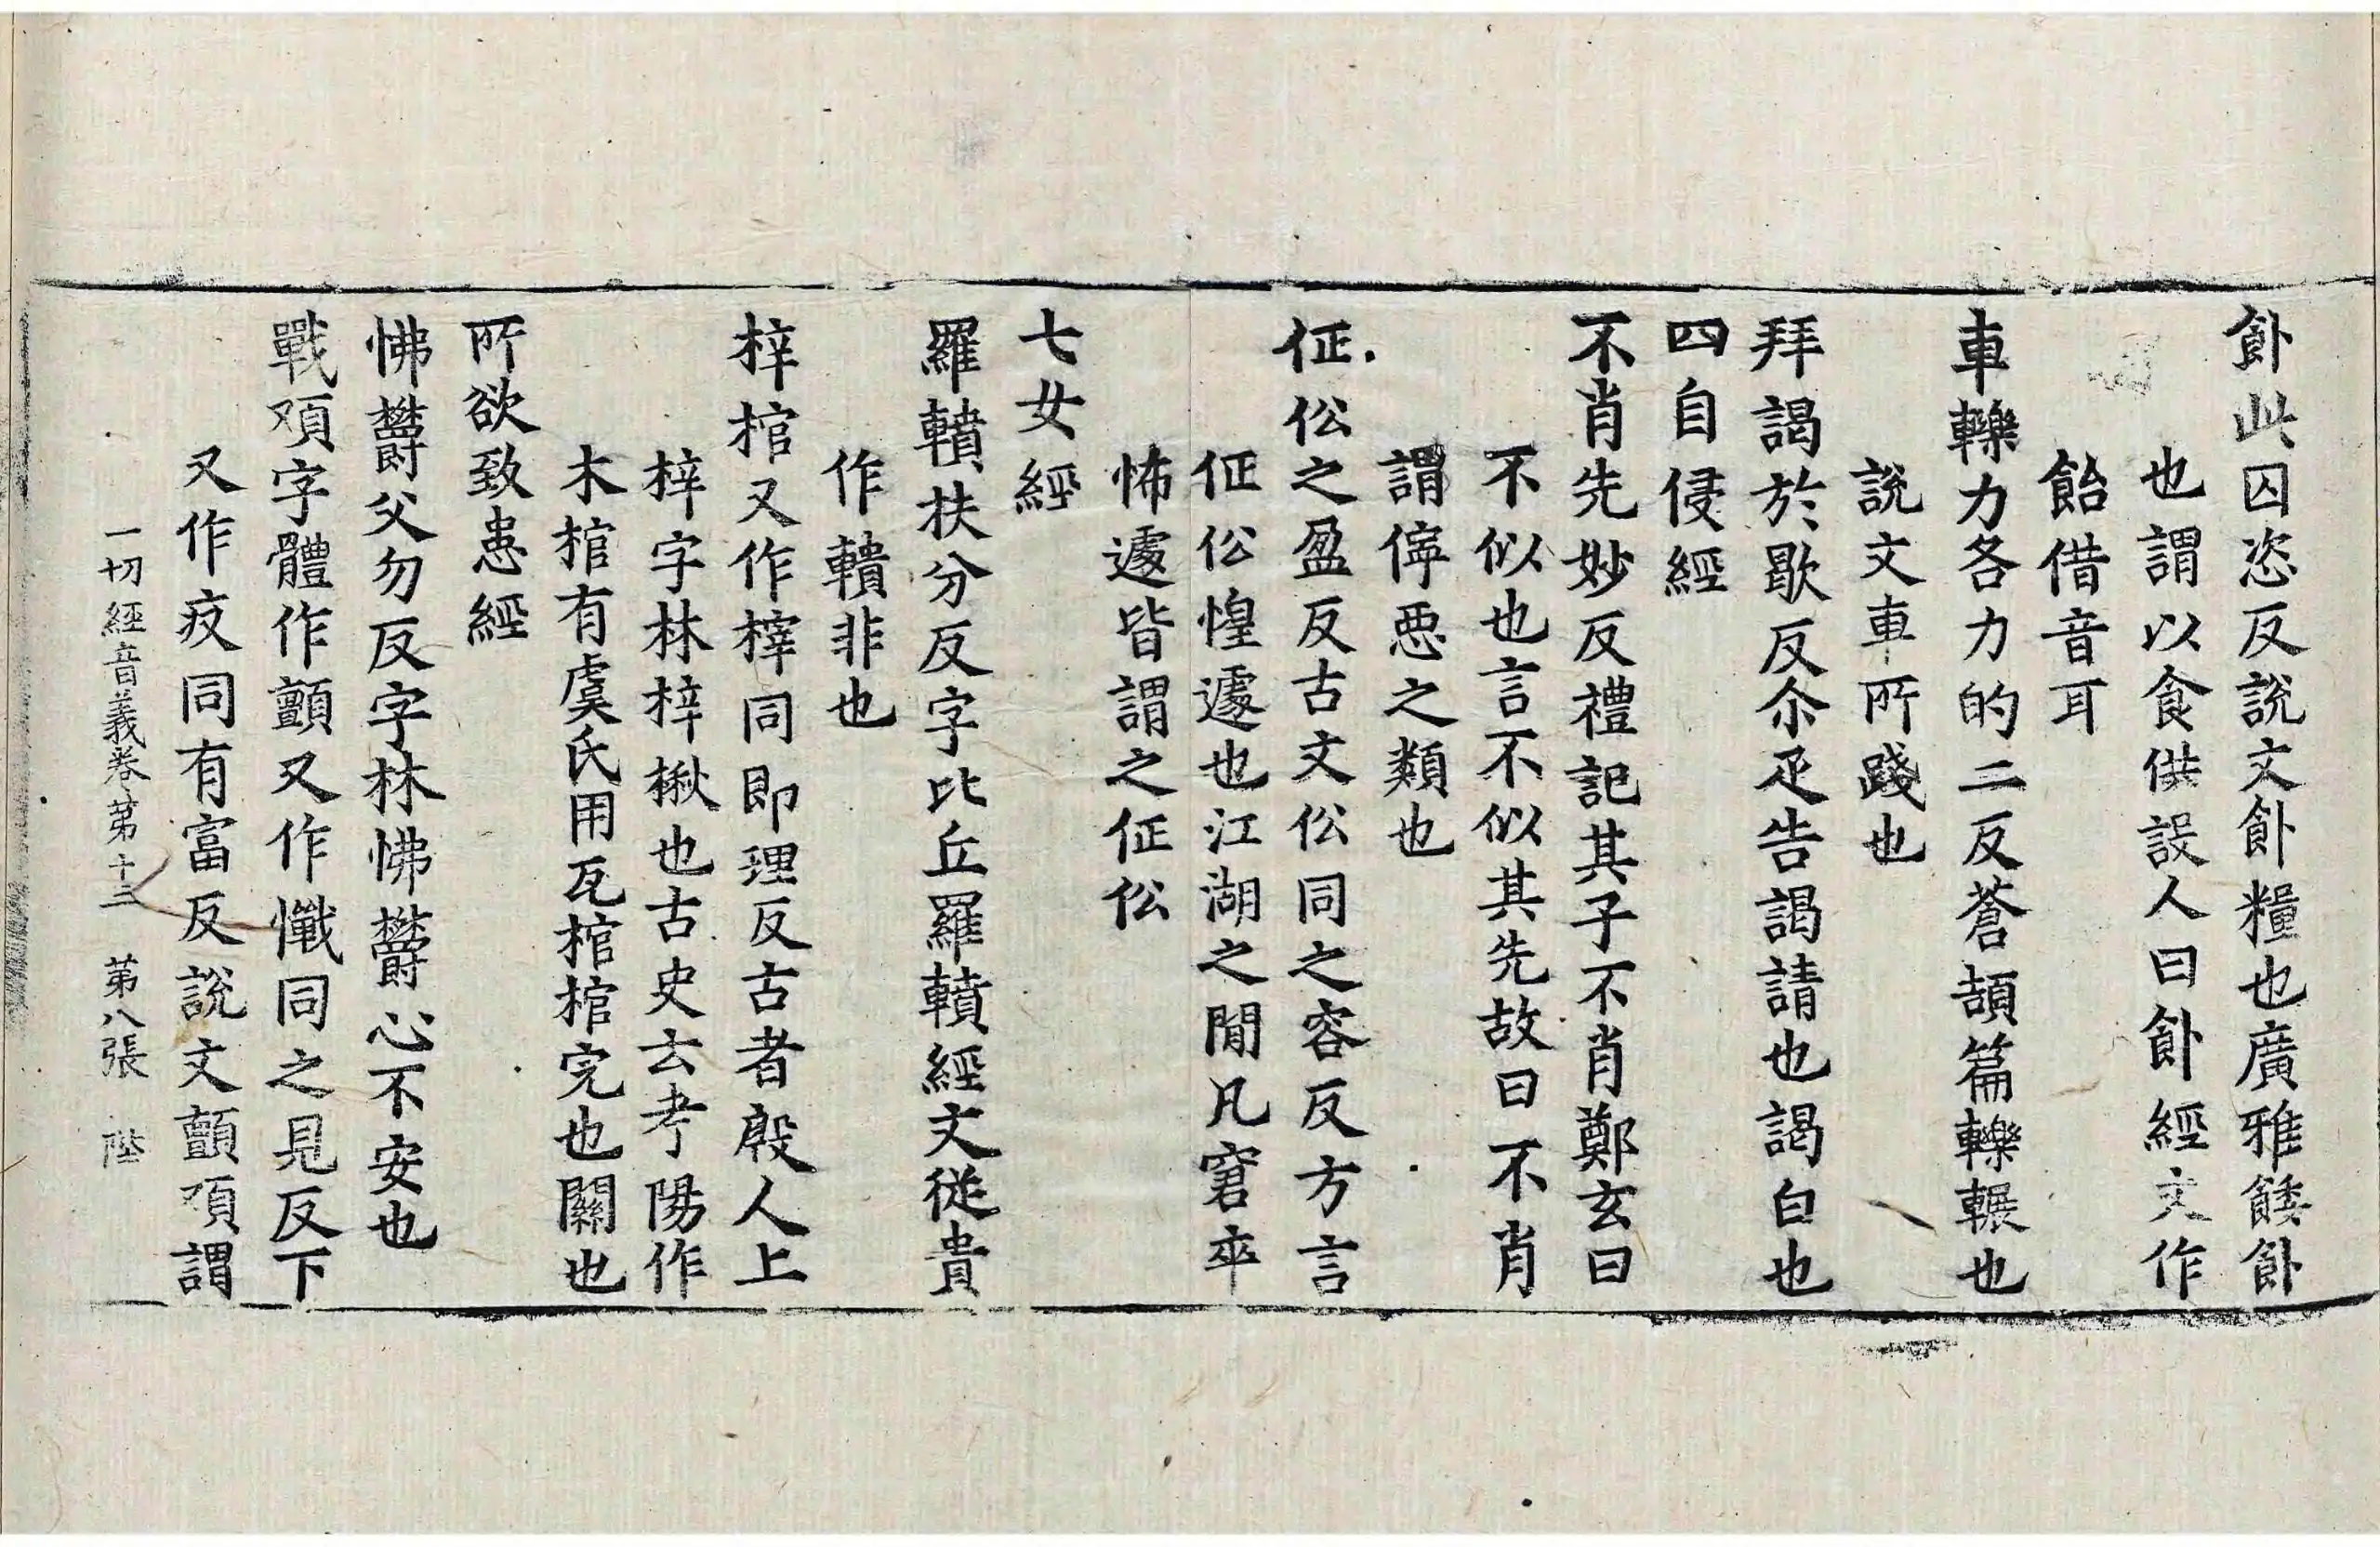 飰此囚恣反說文飰糧也廣雅餧飰
也謂以食供設人曰飰經文作
飴借音耳
車轢力各力的二反蒼頡篇轢輾也
說文車所踐也
拜謁於歇反尒疋告謁請也謁白也
四自侵經
不肖先妙反禮記其子不肖鄭玄曰
不似也言不似其先故曰不肖
謂儜惡之類也
佂伀之盈反古文伀同之容反方言
佂伀惶遽也江湖之閒凡窘卒
怖遽皆謂之佂伀
七女經
羅轒扶分反字比丘羅轒經文從貴
作轒非也
梓棺又作榟同即理反古者殷人上
梓字林梓楸也古史云考陽作
木棺有虞氏用瓦棺棺完也關也
所欲致患經
怫欝父勿反字林怫欝心不安也
戰頄字體作顫又作懺同之見反下
又作疚同有富反說文顫頄謂
一切經音義卷第十三 第八張 陛